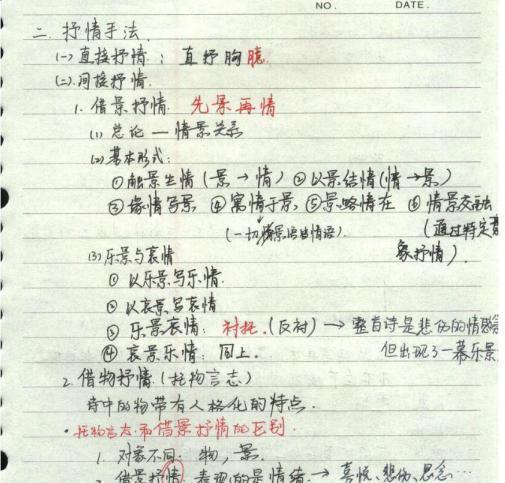 NO. DATE.
二. 抒情手法.
(一) 直接抒情: 直抒胸臆.
(二). 间接抒情.
1. 借景抒情. 先景再情
(1) 总论 — 情景关系
(2) 基本形式:
①触景生情 (景→情) ②以景结情(情→景)
③缘情写景 ④寓情于景 ⑤景略情在 ⑥情景交融
(一切景语皆情语). (通过特定意
象抒情).
(3) 乐景与哀情
① 以乐景写乐情.
② 以哀景写哀情
③ 乐景哀情: 衬托.(反衬) → 整首诗是悲伤的情感
④ 哀景乐情: 同上. 但出现了一幕乐景
2. 借物抒情 (托物言志)
诗中的物带有人格化的特点.
• 托物言志和借景抒情的区别.
1. 对象不同. 物, 景.
借景抒情 表现的是情绪. → 喜悦、悲伤、思念…